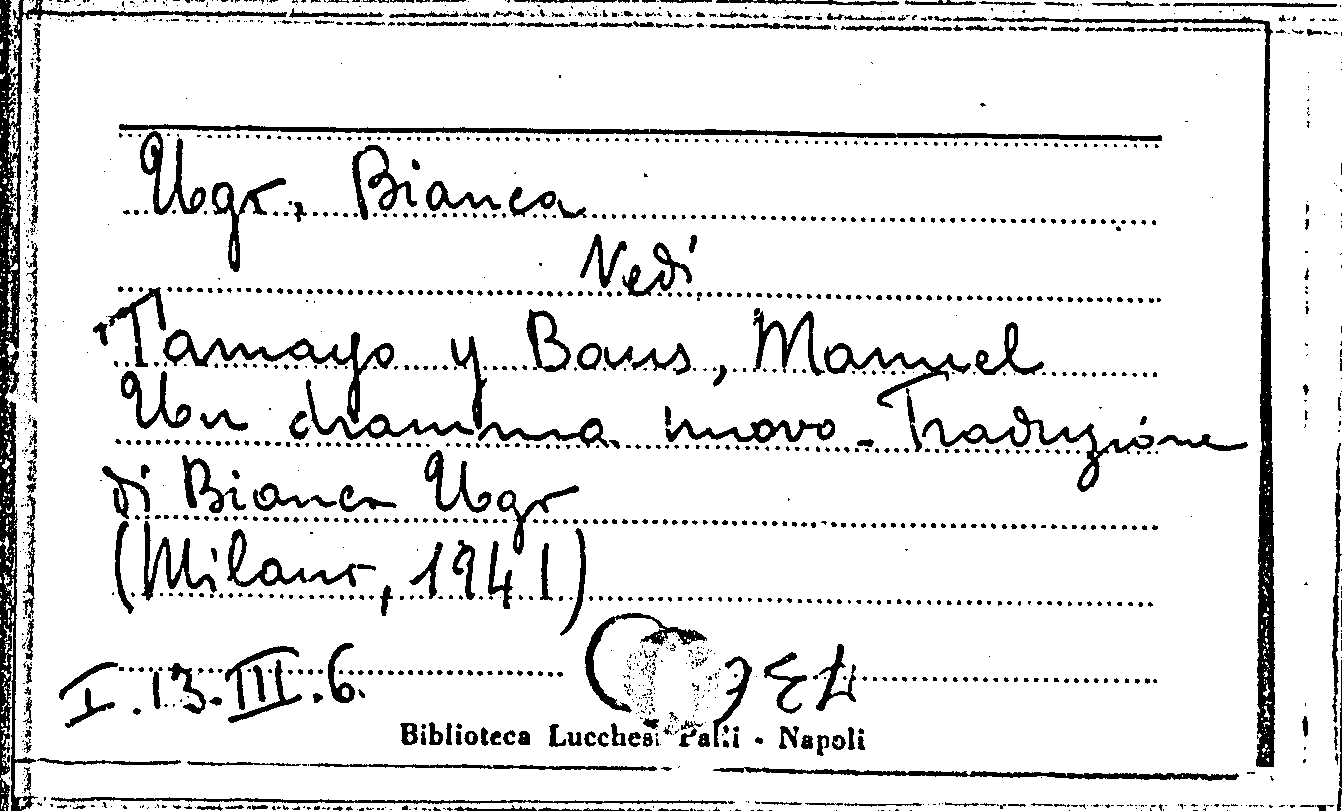 Ugo, Bianca
Vedi
Tamayo y Baus, Manuel
Un dramma nuovo - Traduzione
di Bianca Ugo
(Milano, 1941)
I.13.III.6.
Biblioteca Lucchesi Palli - Napoli